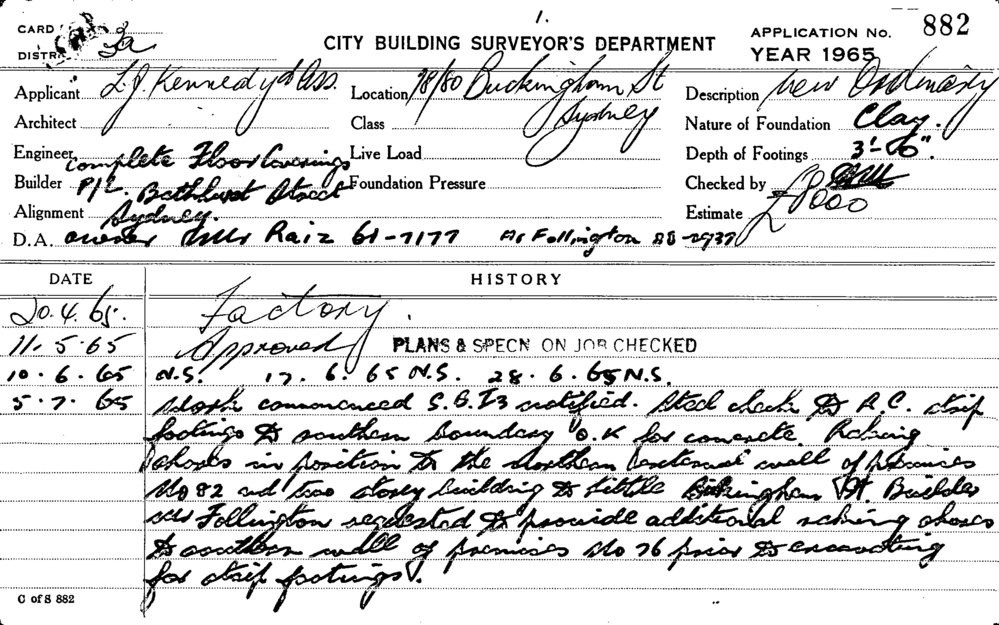 1.
CARD
DISTRICT 3a
CITY BUILDING SURVEYOR'S DEPARTMENT
APPLICATION No. 882
YEAR 1965
Applicant L.J. Kennedy & Ass. Location 78/80 Buckingham St Description New Ordinary
Architect Class Sydney Nature of Foundation Clay.
Engineer Complete Floor Coverings Live Load Depth of Footings 3'-6".
Builder P/L. Bathurst Street Foundation Pressure Checked by
Alignment Sydney. Estimate £8000
D.A. owner Mr Raiz 61-7177 Mr Follington
DATE HISTORY
20.4.65. Factory.
11-5-65 Approved PLANS & SPECN ON JOB CHECKED
10.6.65 N.S. 17.6.65 N.S. 28.6.65 N.S.
5.7.65 Work commenced notified. Steel check to R.C. strip
footings to southern boundary O.K for concrete. Raking
shores in position to the northern external wall of premises
No 82 two storey building to Little Buckingham St. Builder
Mr Follington requested to provide additional raking shores
to southern wall of premises No 76 prior to excavating
for strip footings.
C of S 882